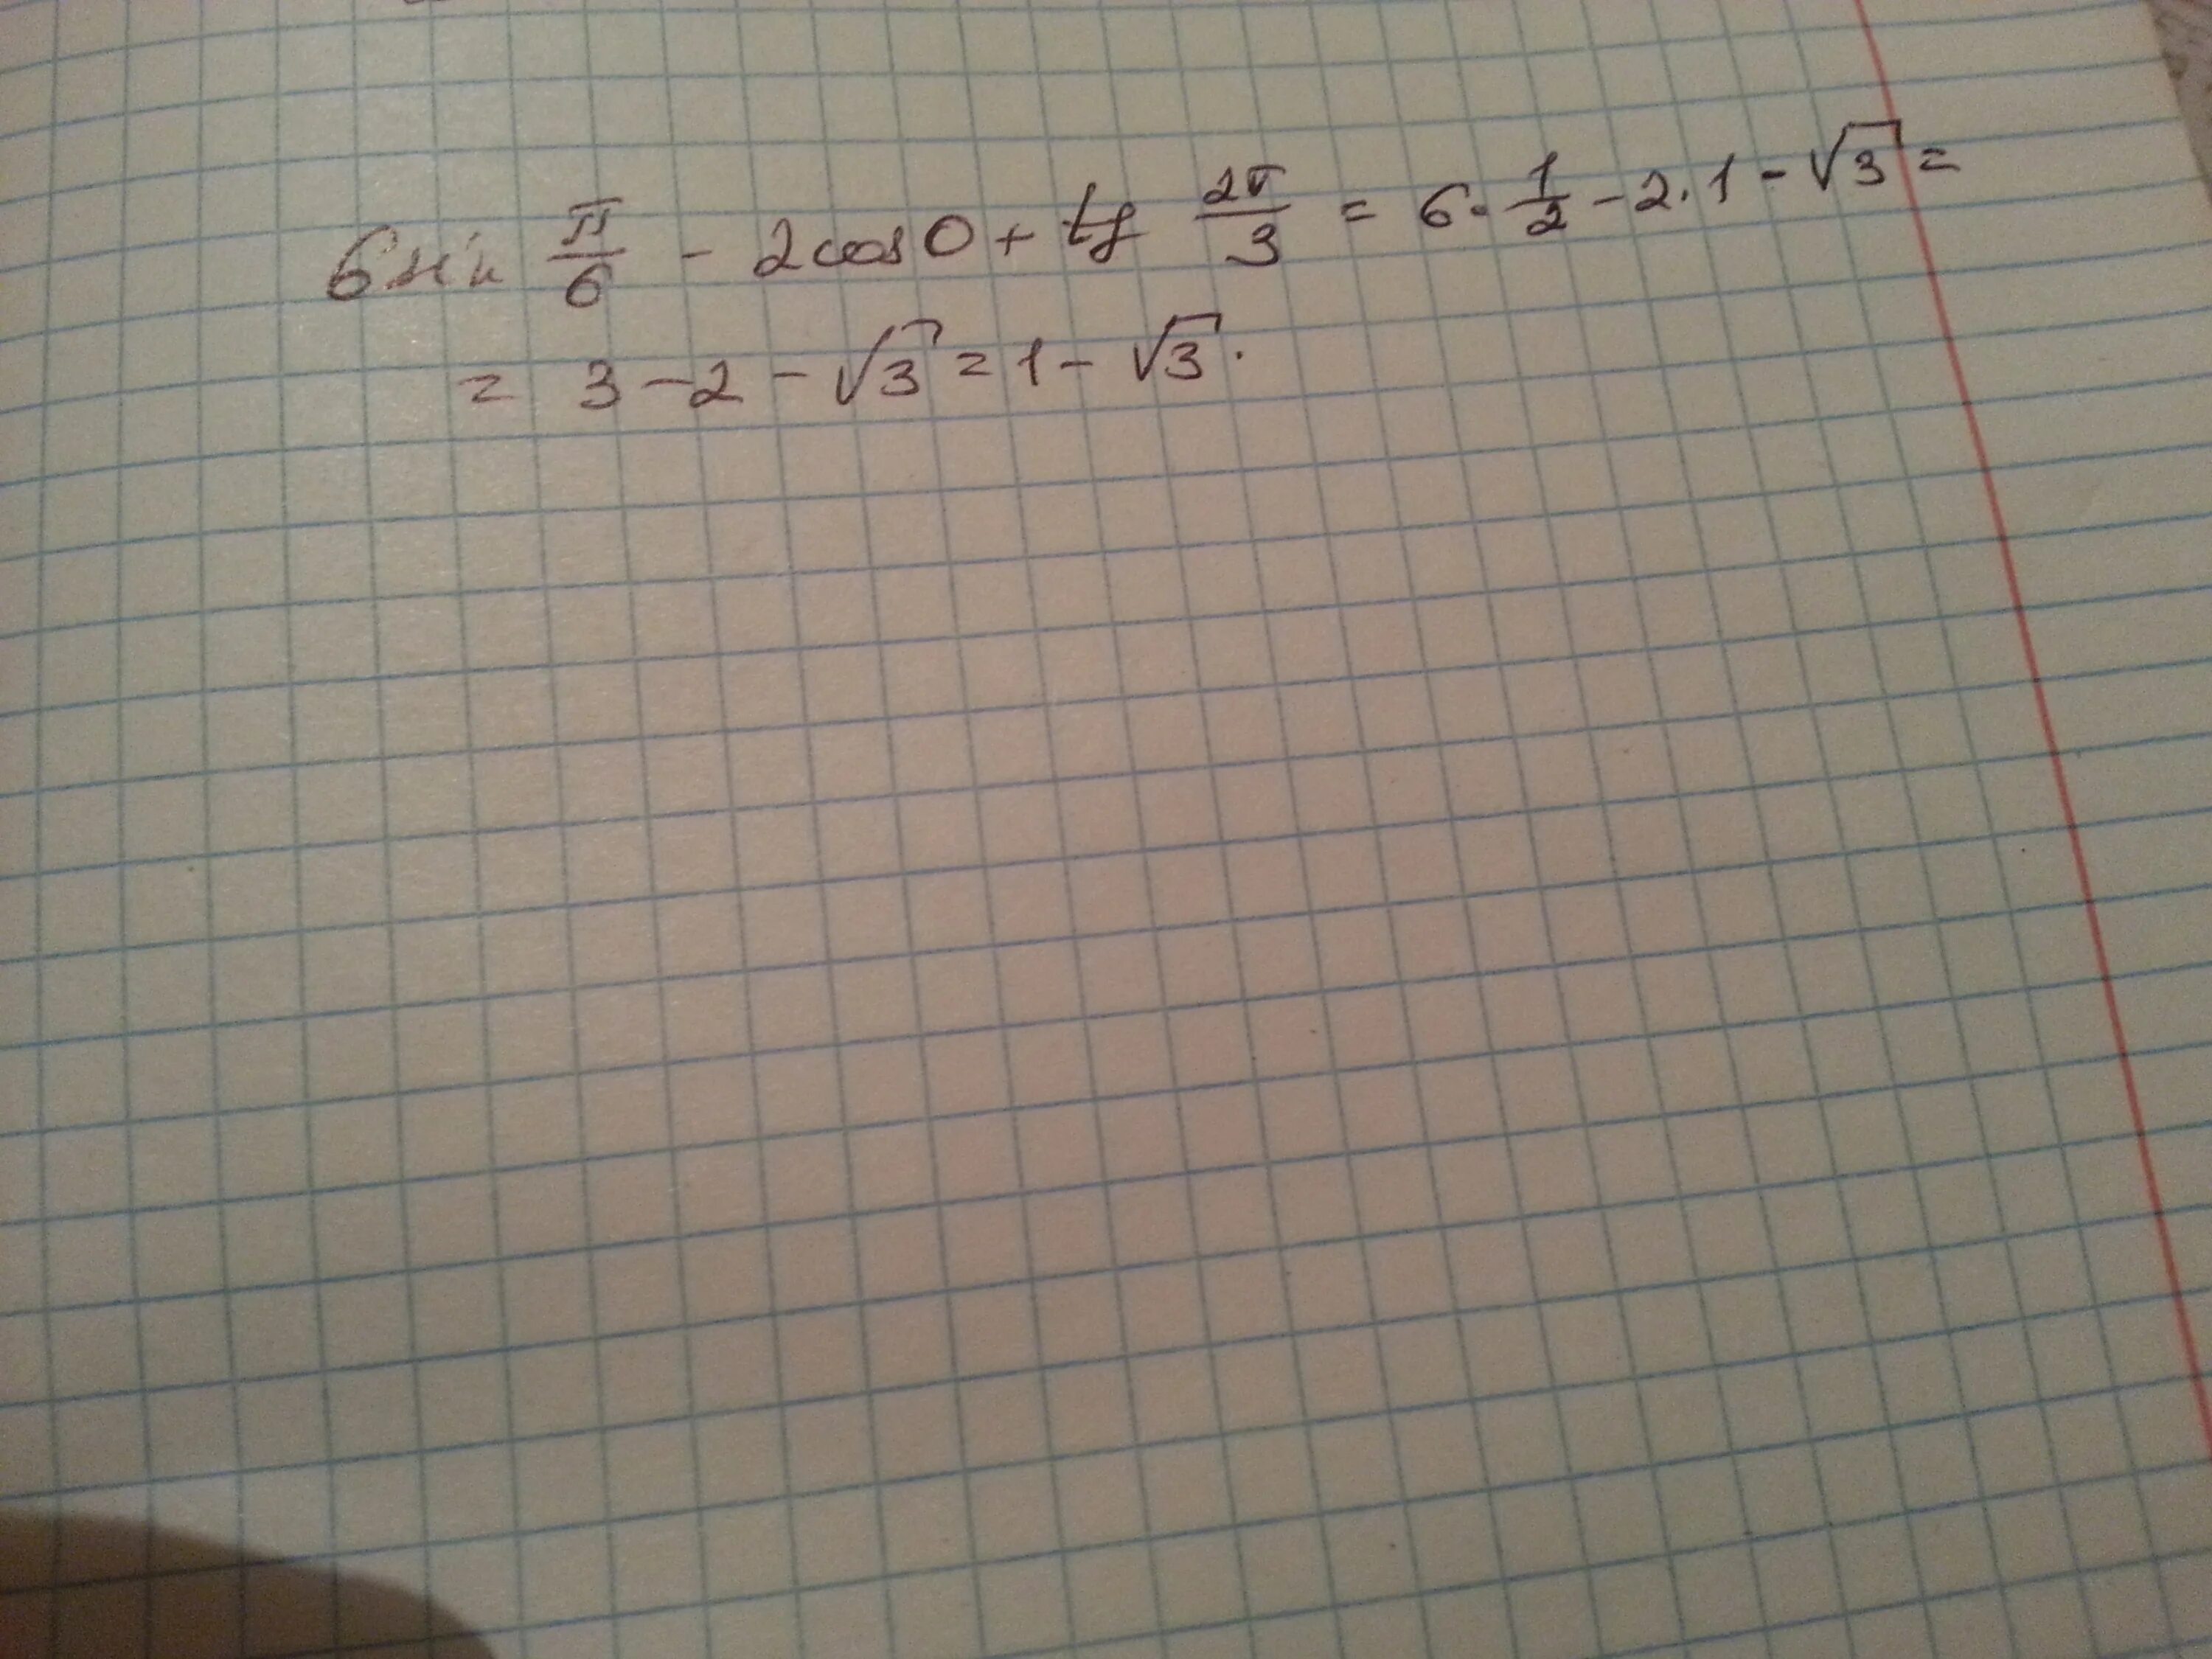 6 sin π/6 - 2cos0 + tg 2π/3 = 6·1/2 - 2·1 - √3 =
= 3 - 2 - √3 = 1 - √3.